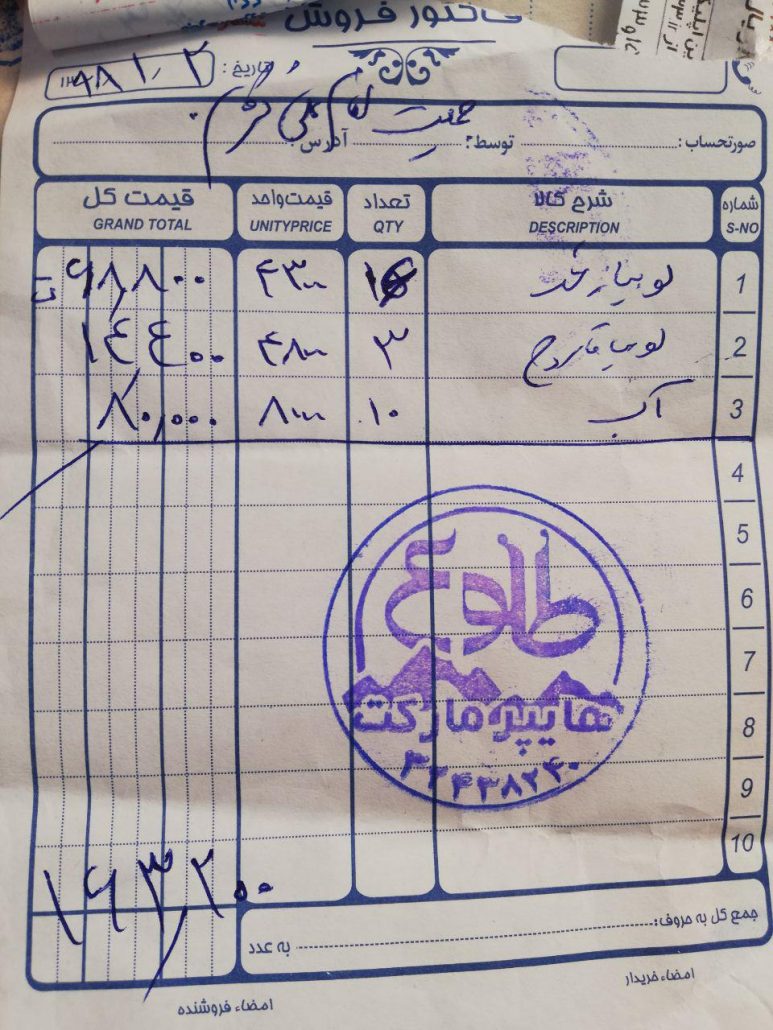 فاکتور فروش
تاریخ: ۹۸/۱۰/۳
جمعیت امام علی
صورتحساب: توسط: آدرس
شماره شرح کالا تعداد قیمت واحد قیمت کل
S-NO DESCRIPTION QTY UNITYPRICE GRAND TOTAL
1 لوبیا ۱۶ ۴۳۰۰ ۶۸,۸۰۰ ت
2 لوبیا ۳ ۴۸۰۰ ۱۴۴۰۰
3 آب ۱۰ ۸۰۰۰ ۸۰,۰۰۰
4
5
6
7
8
9
10
طلوع
هایپر مارکت
۳۲۴۳۸۲۴۰
۱۶۳,۲۰۰
جمع کل به حروف:
به عدد
امضاء خریدار
امضاء فروشنده